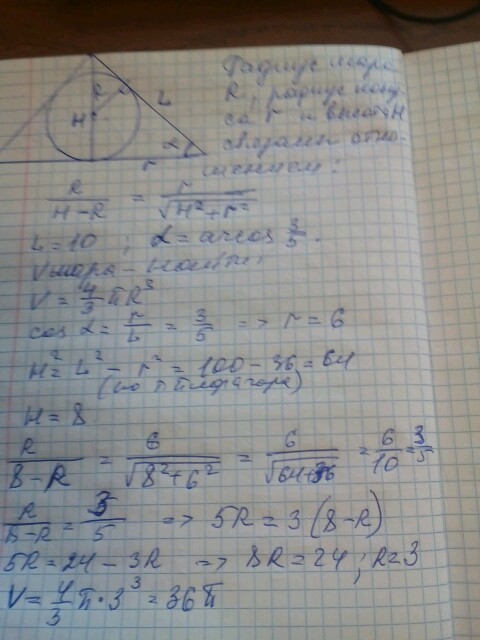 Радиус шара
R, радиус кону-
са r и высота H
связаны отно-
шением:
R L
H
α
r
R/(H-R) = r/√(H²+r²)
L=10 ; α = arcos 3/5.
Vшара - найти:
V = 4/3 πR³
cos α = r/L = 3/5 => r = 6
H² = L² - r² = 100 - 36 = 64
(по т Пифагора)
H = 8
R/(8-R) = 6/√(8²+6²) = 6/√(64+36) = 6/10 = 3/5
R/(8-R) = 3/5 => 5R = 3(8-R)
5R = 24 - 3R => 8R = 24 ; R = 3
V = 4/3 π·3³ = 36π